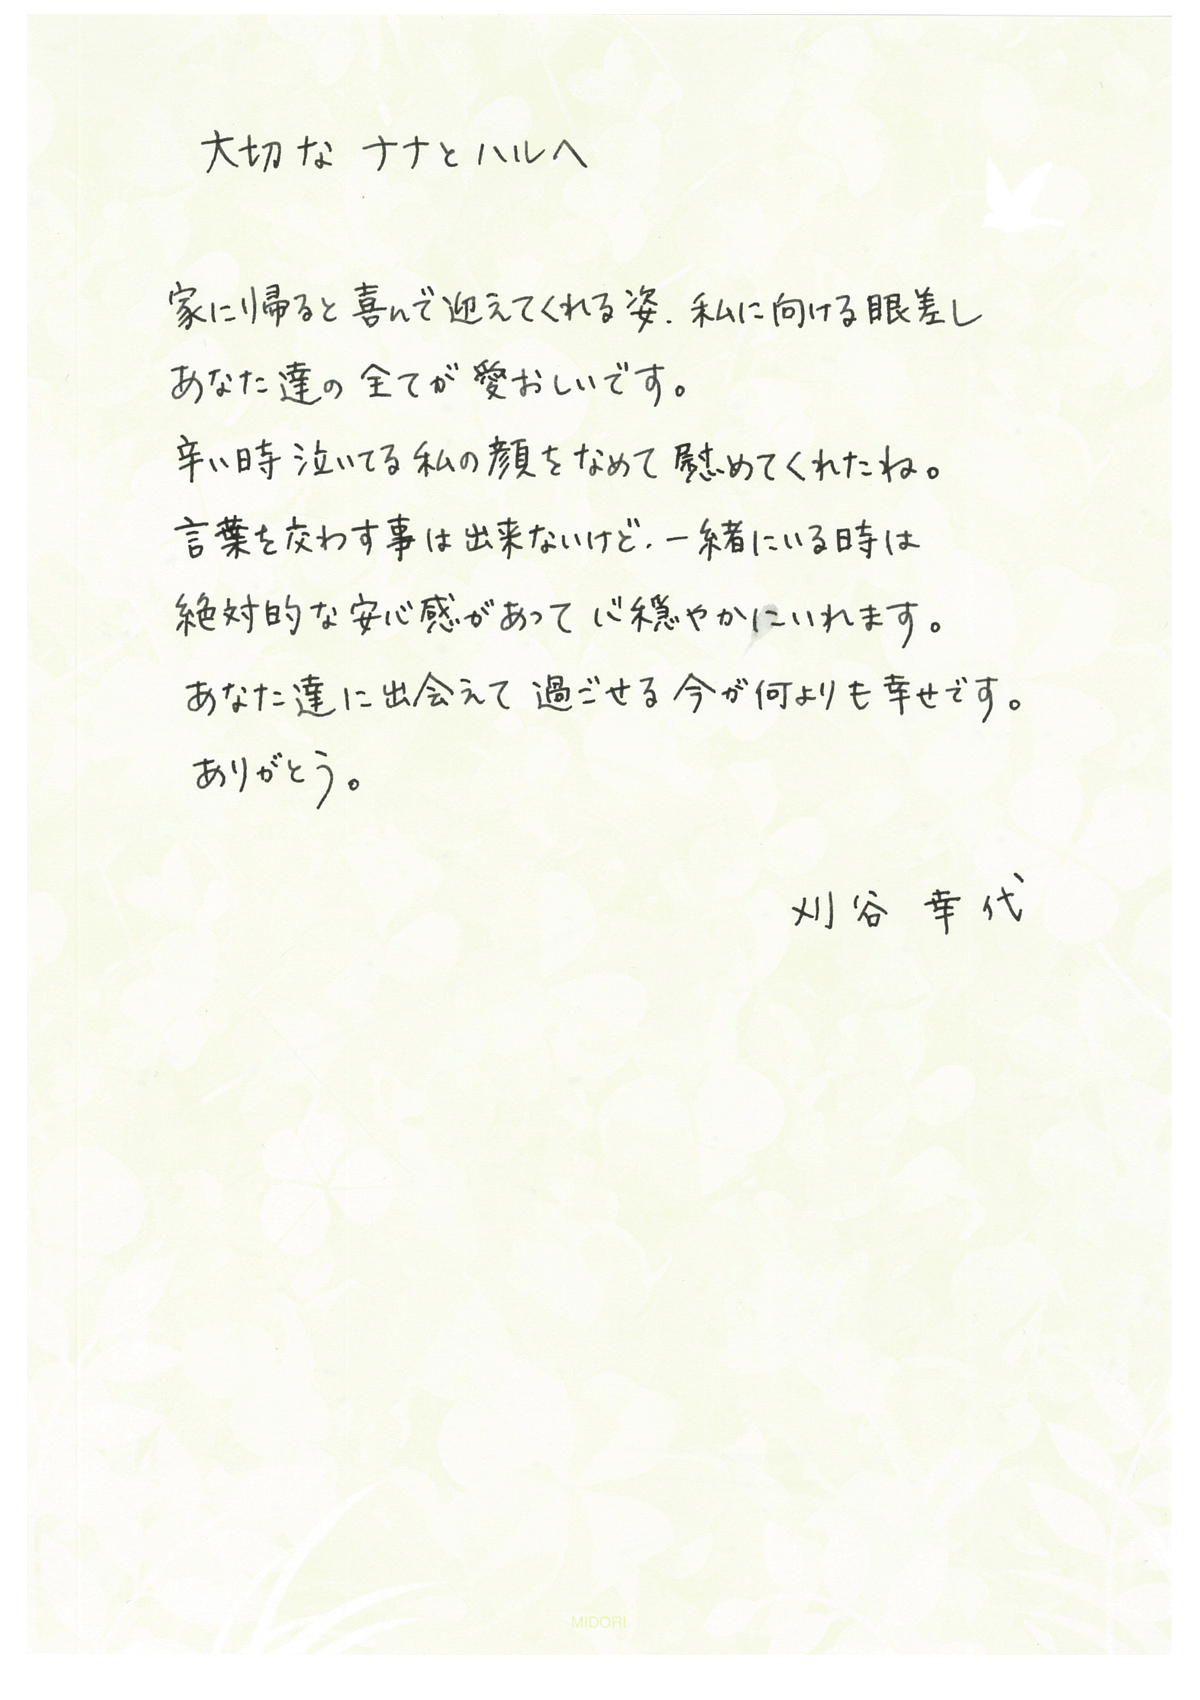 大切な ナナとハルへ
家に帰ると喜んで迎えてくれる姿、私に向ける眼差し
あなた達の全てが愛おしいです。
辛い時泣いてる私の顔をなめて慰めてくれたね。
言葉を交わす事は出来ないけど、一緒にいる時は
絶対的な安心感があって心穏やかにいれます。
あなた達に出会えて過ごせる今が何よりも幸せです。
ありがとう。
刈谷 幸代
MIDORI